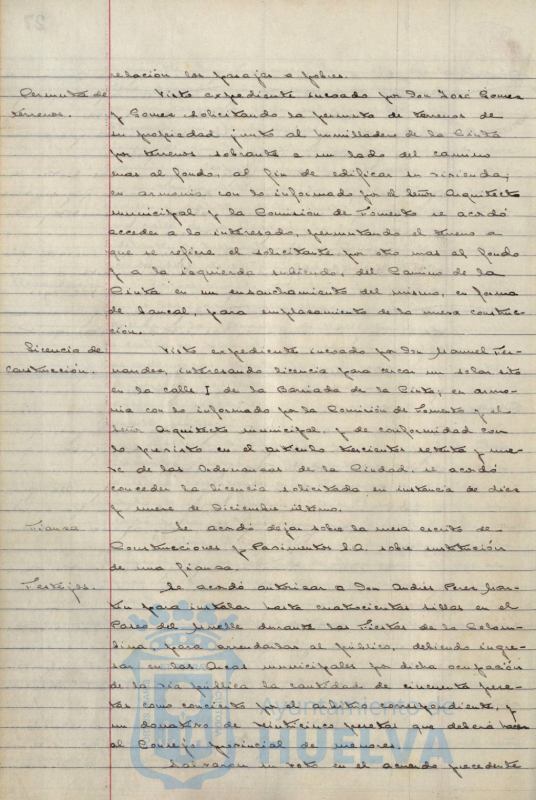 relación los pasajes a pobres.
Permuta de
terrenos.
Visto expediente incoado por Don José Gómez
y Gómez solicitando la permuta de terrenos de
su propiedad junto al humilladero de la Cinta
por terrenos sobrante a un lado del camino
mas al fondo, al fin de edificar su vivienda;
en armonía con lo informado por el Señor Arquitecto
municipal y la Comisión de Fomento se acordó
acceder a lo interesado, permutando el terreno a
que se refiere el solicitante por otro mas al fondo
y a la izquierda subiendo, del Camino de la
Cinta en un ensanchamiento del mismo, en forma
de bancal, para emplazamiento de la nueva construc-
ción.
Licencia de
construcción.
Visto expediente incoado por Don Manuel Fer-
nandez, interesando licencia para cercar un solar sito
en la calle I de la Barriada de la Cinta; en armo-
nia con lo informado por la Comisión de Fomento y el
Señor Arquitecto municipal, y de conformidad con
lo previsto en el artículo trescientos setenta y nue-
ve de las Ordenanzas de la Ciudad, se acordó
conceder la licencia solicitada en instancia de diez
y nueve de Diciembre último.
Fianza
Se acordó dejar sobre la mesa escrito de
Construcciones y Pavimentos S.A. sobre sustitución
de una fianza.
Festejos.
Se acordó autorizar a Don Andrés Perez Mar-
tin para instalar hasta cuatrocientas sillas en el
Paseo del Muelle durante las Fiestas de la Colom-
bina, para arrendarlas al público, debiendo ingre-
sar en las Arcas municipales por dicha ocupación
de la vía pública la cantidad de cincuenta pese-
tas como concierto por el arbitrio correspondiente, y
un donativo de veinticinco pesetas que deberá hacer
al Consejo provincial de menores.
Salvaron su voto en el acuerdo precedente
Ayuntamiento de
HUELVA